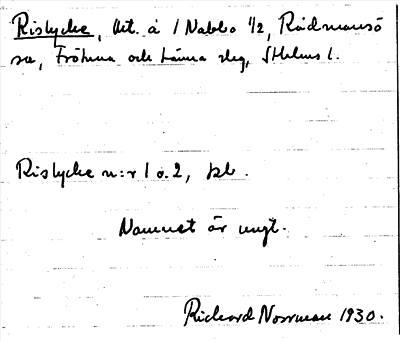 Rislycke, Út. å 1 Nabbo 1/2, Rådmansö
sn, Frötuna och Länna slg, Sthlms l.
Rislycke n:r 1 o. 2, jbr.
Namnet är ungt.
Richard Norrman 1930.